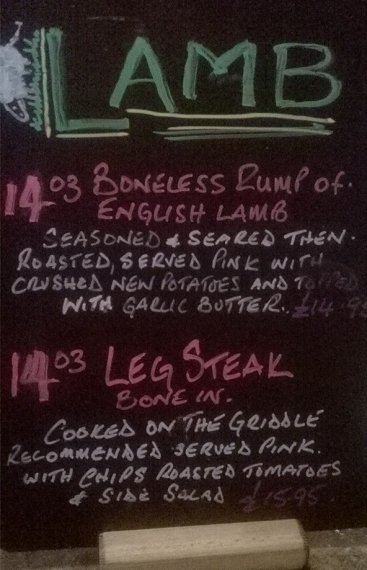 LAMB
14 03 BONELESS RUMP OF.
ENGLISH LAMB
SEASONED & SEARED THEN.
ROASTED, SERVED PINK WITH
CRUSHED NEW POTATOES AND TOPPED
WITH GARLIC BUTTER. £14.95
14 03 LEG STEAK
BONE IN.
COOKED ON THE GRIDDLE
RECOMMENDED SERVED PINK.
WITH CHIPS ROASTED TOMATOES
& SIDE SALAD £15.95